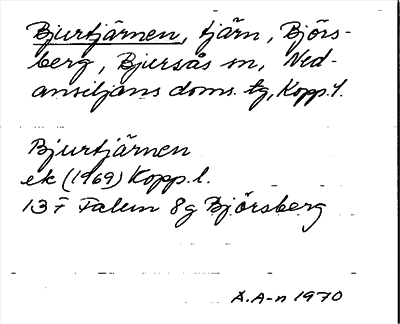 Bjurtjärnen, tjärn, Björs-
berg, Bjursås sn, Ned-
ansiljans doms. tg, Kopp. l.
Bjurtjärnen
ek (1969) Kopp. l.
13 F Falun 8g Björsberg
A.A-n 1970